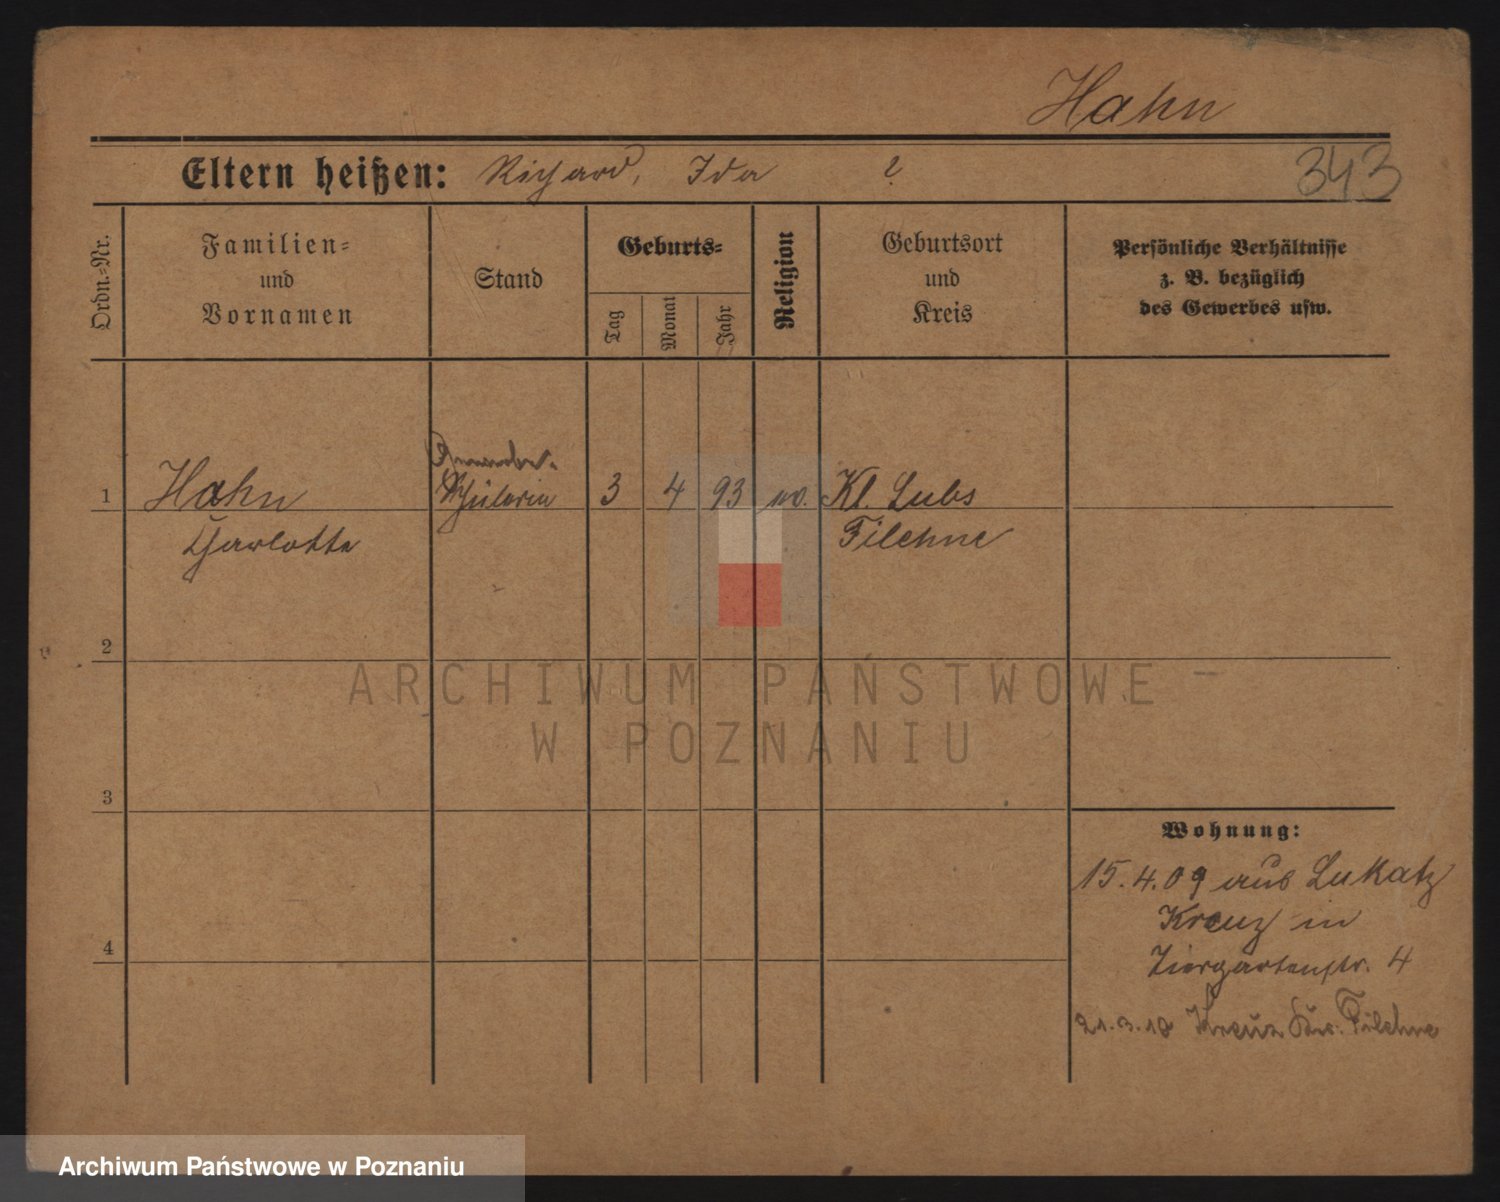 Hahn
Eltern heißen: Richard, Ida ?
343
Ordn.-Nr.
Familien-
und
Vornamen
Stand
Geburts-
Tag
Monat
Jahr
Religion
Geburtsort
und
Kreis
Persönliche Verhältnisse
z. B. bezüglich
des Gewerbes usw.
1 Hahn Schülerin 3 4 93 ev. Kl. Lubs
Charlotte Filehne
2
3
4
Wohnung:
15.4.09 aus Lukatz
Kreuz in
Tiergartenstr. 4
21.3.10 Kreuz Kr. Filehne
ARCHIWUM PAŃSTWOWE
W POZNANIU
Archiwum Państwowe w Poznaniu